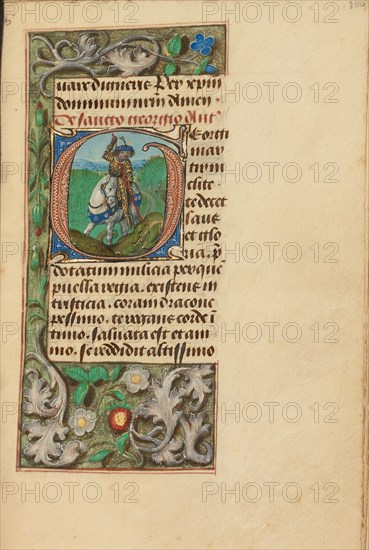 uari digneris Per xpm
dominum nrm Amen
De sancto georgio Ant
Georgi
mar
tir in
clite
te decet
laus
et glo
ria. p
dotatum milicia per que
puella regia. existens in
tristicia. coram dracone
pessimo. te rogane corde i
timo. saluata est et ani
mo. Se reddidit altissimo
PHOTO 12